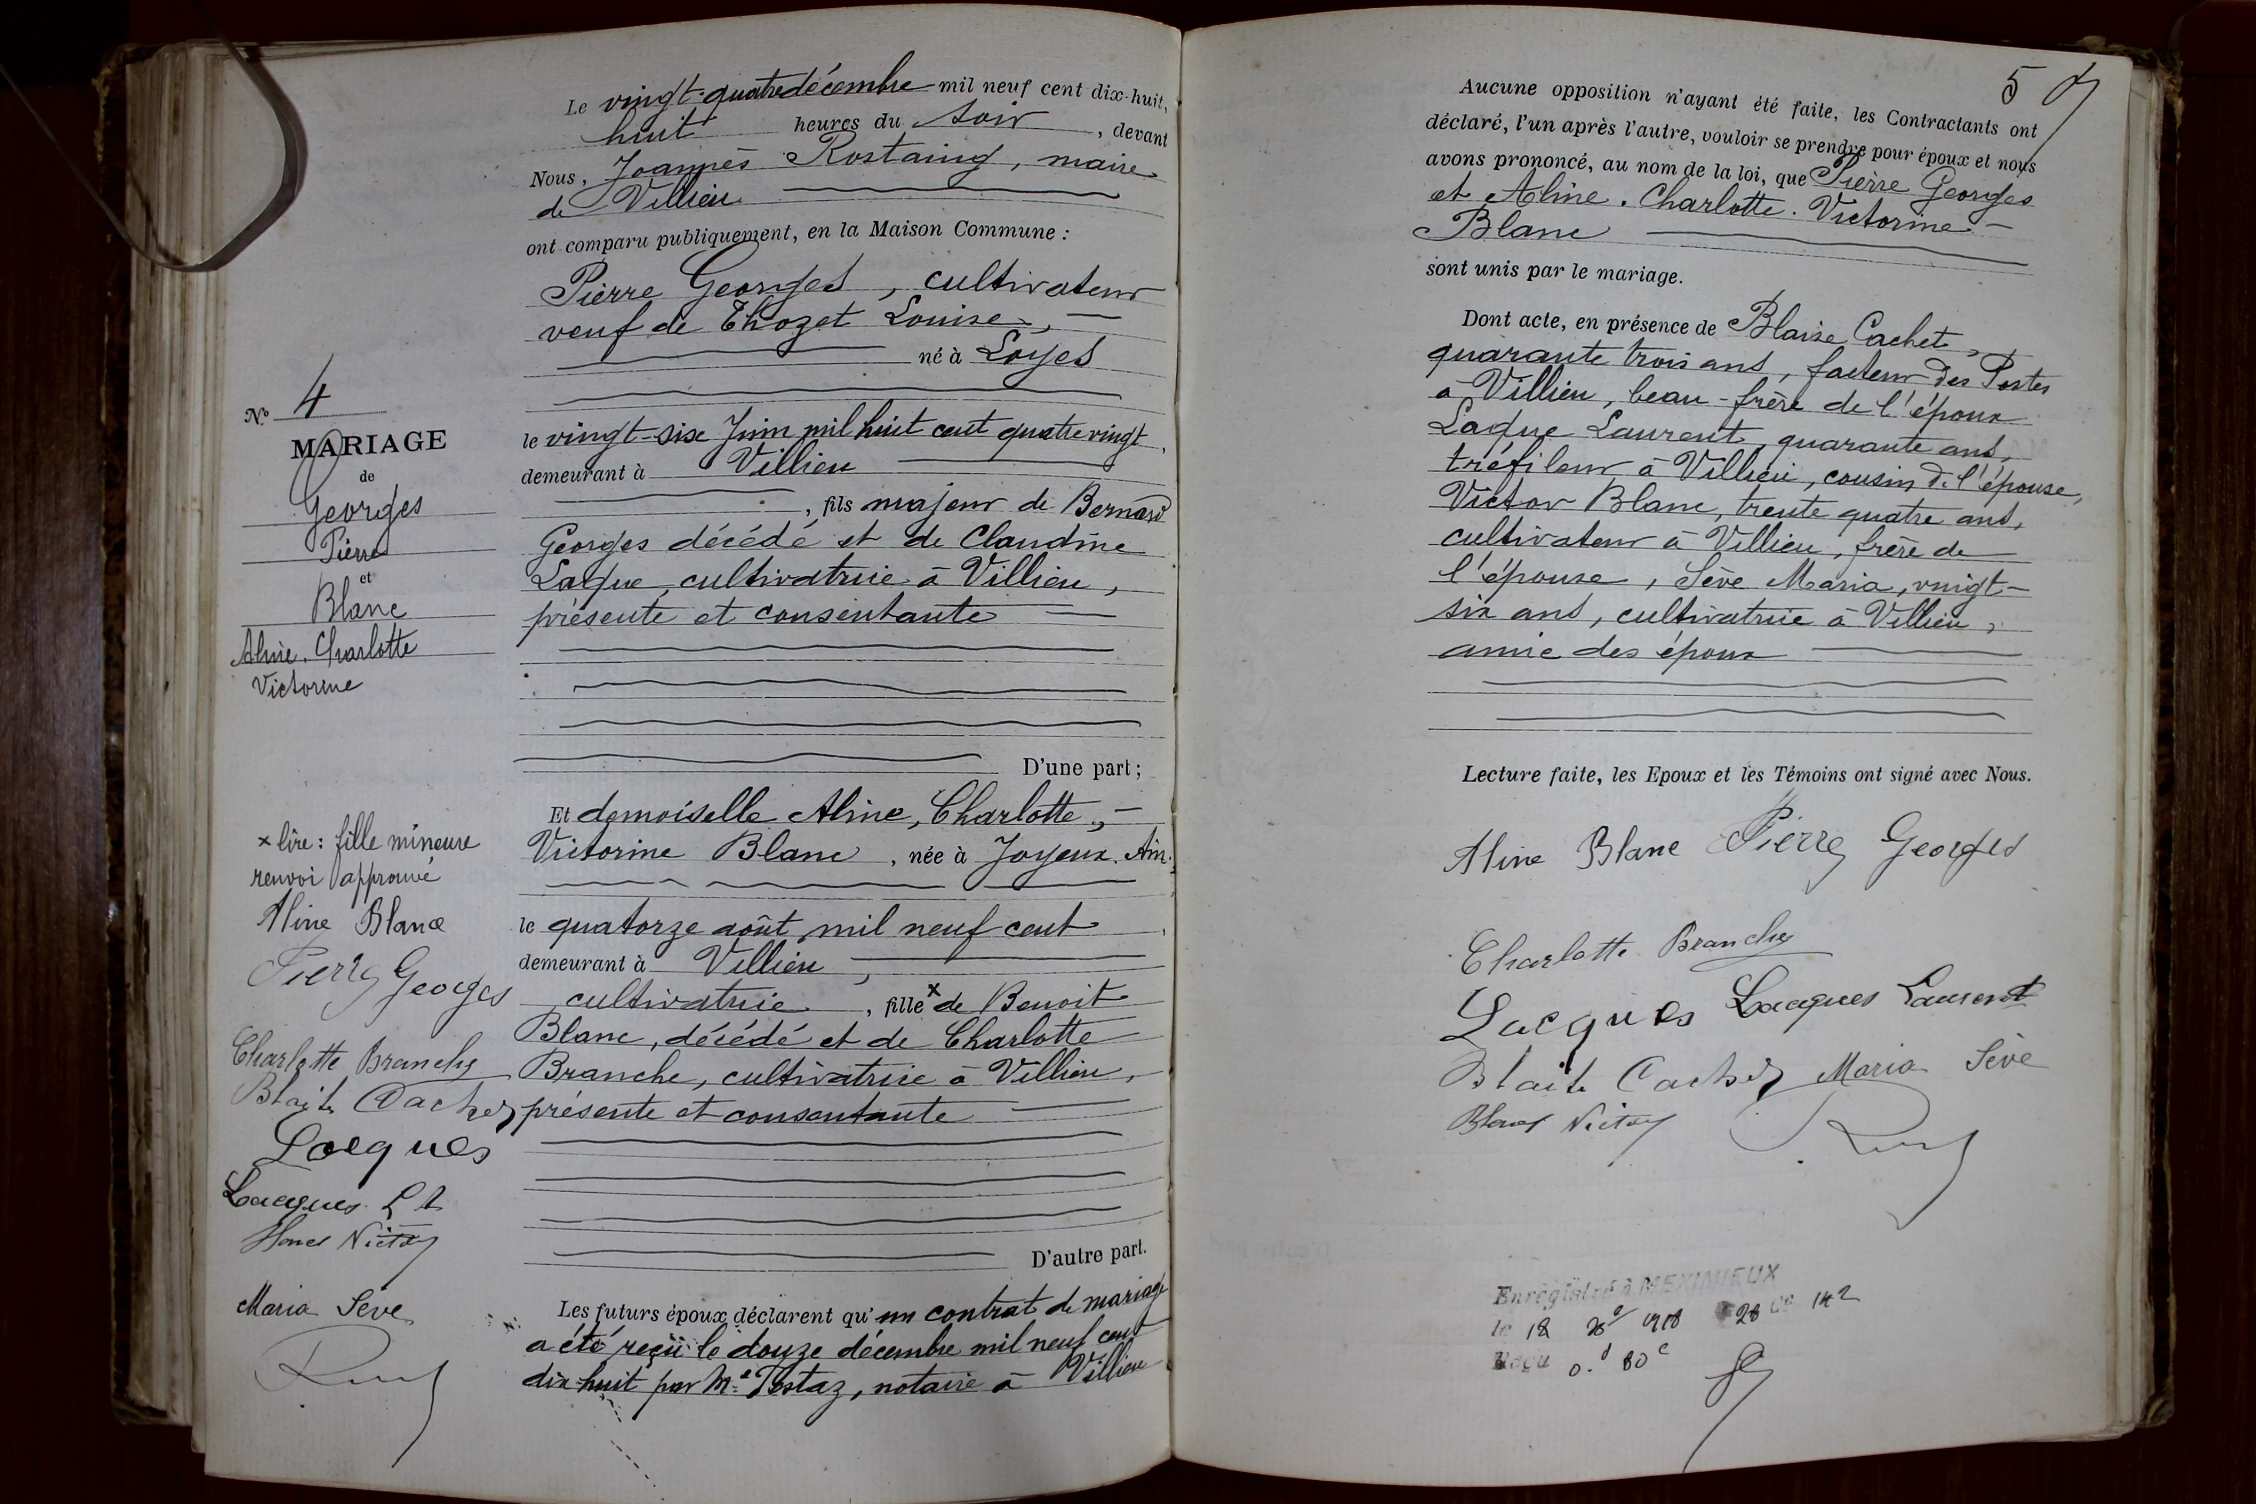 Le vingt-quatre décembre mil neuf cent dix-huit,
huit heures du soir, devant
Nous, Joannès Rostaing, maire
de Villieu
ont comparu publiquement, en la Maison Commune :
Pierre Georges, cultivateur
veuf de Thozet Louise,
né à Loyes
le vingt-six Juin mil huit cent quatre vingt,
demeurant à Villieu
, fils majeur de Bernard
Georges décédé et de Claudine
Laque, cultivatrice à Villieu,
présente et consentante
D'une part ;
Et demoiselle Aline, Charlotte,
Victorine Blanc, née à Joyeux. Ain.
le quatorze août mil neuf cent,
demeurant à Villieu,
cultivatrice, fille x de Benoit
Blanc, décédé et de Charlotte
Branche, cultivatrice à Villieu,
présente et consentante
D'autre part.
Les futurs époux déclarent qu'un contrat de mariage
a été reçu le douze décembre mil neuf cent
dix-huit par Me Tostaz, notaire à Villieu
No 4
MARIAGE
de
Georges
Pierre
et
Blanc
Aline. Charlotte
Victorine
x lire : fille mineure
renvoi approuvé
Aline Blanc
Pierre Georges
Charlotte Branche
Blaise Cachet
Lacques
Lacques Lt
Blanc Victor
Maria Sève
5
Aucune opposition n'ayant été faite, les Contractants ont
déclaré, l'un après l'autre, vouloir se prendre pour époux et nous
avons prononcé, au nom de la loi, que Pierre Georges
et Aline. Charlotte. Victorine
Blanc
sont unis par le mariage.
Dont acte, en présence de Blaise Cachet,
quarante trois ans, facteur des Postes
à Villieu, beau-frère de l'époux
Laque Laurent, quarante ans,
tréfileur à Villieu, cousin de l'épouse,
Victor Blanc, trente quatre ans,
cultivateur à Villieu, frère de
l'épouse, Sève Maria, vingt-
six ans, cultivatrice à Villieu,
amie des époux
Lecture faite, les Epoux et les Témoins ont signé avec Nous.
Aline Blanc Pierre Georges
Charlotte Branche
Lacques Lacques Laurent
Blaise Cachet Maria Sève
Blanc Victor
Enregistré à MEXIMIEUX
le 1918 28 Ce 142
Reçu 0. 80c